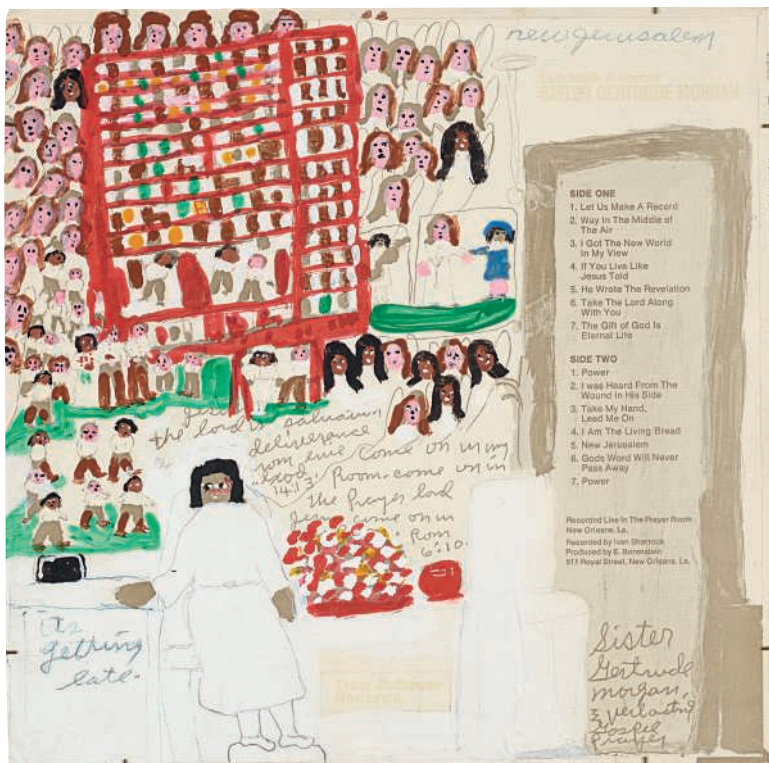 new jerusalem
SISTER GERTRUDE MORGAN
SIDE ONE
1. Let Us Make A Record
2. Way In The Middle of
The Air
3. I Got The New World
In My View
4. If You Live Like
Jesus Told
5. He Wrote The Revelation
6. Take The Lord Along
With You
7. The Gift of God Is
Eternal Life
SIDE TWO
1. Power
2. I was Heard From The
Wound In His Side
3. Take My Hand,
Lead Me On
4. I Am The Living Bread
5. New Jerusalem
6. Gods Word Will Never
Pass Away
7. Power
Recorded Live In The Prayer Room
New Orleans, La.
Recorded by Ivan Sharrock
Produced by E. Borenstein
511 Royal Street, New Orleans, La.
the lord salvation
deliverence
come on in my
14.13 Room. come on in
the Prayer
come on in
Rom
6:10.
its
getting
late.
Sister
Gertrude
morgan,
Gospel